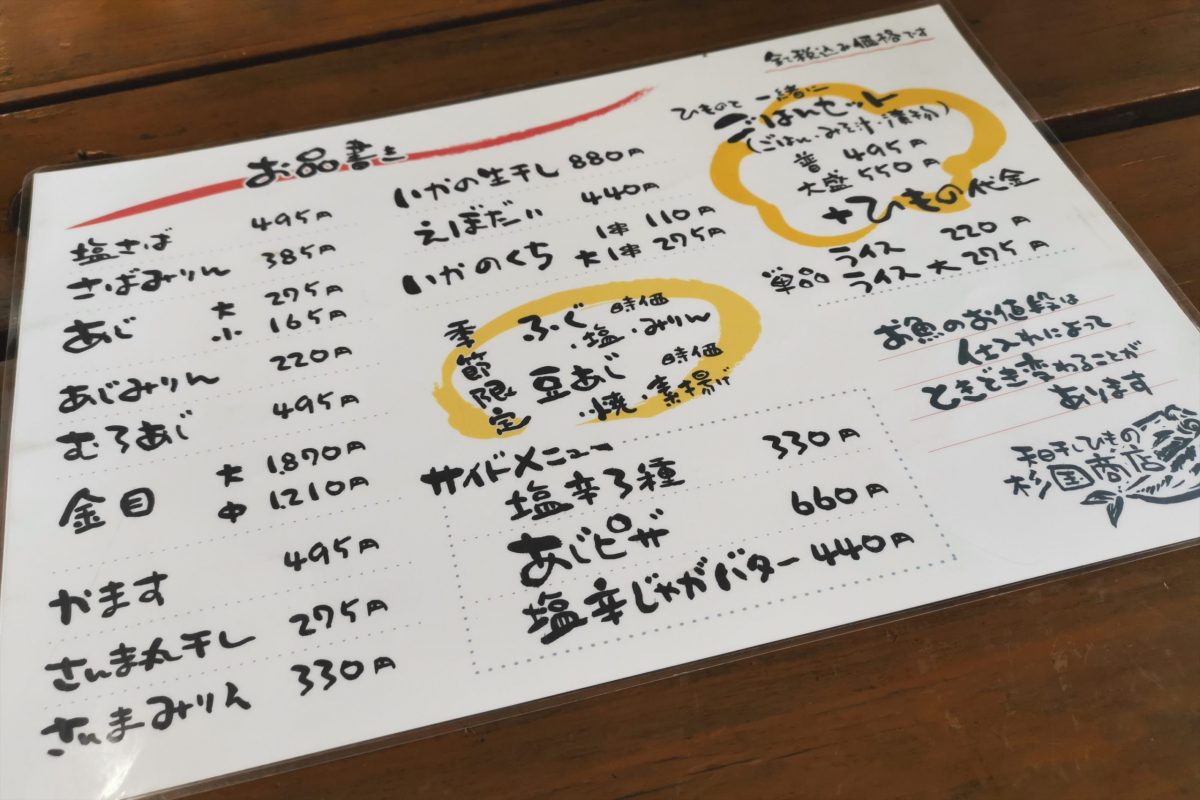 お品書き
塩さば 495円
さばみりん 385円
あじ 大 275円
小 165円
あじみりん 220円
むろあじ 495円
金目 大 1.870円
中 1.210円
かます 495円
さんま丸干し 275円
さんまみりん 330円
いかの生干し 880円
えぼだい 440円
いかのくち 1串 110円
大1串 275円
季節限定
ふぐ 時価
・塩・みりん
豆あじ 時価
・焼・素揚げ
サイドメニュー
塩辛3種 330円
あじピザ 660円
塩辛じゃがバター 440円
全て税込み価格です
ひものと一緒に
ごはんセット
(ごはん・みそ汁・漬物)
普 495円
大盛 550円
+ひもの代金
単品 ライス 220円
ライス大 275円
お魚のお値段は
仕入れによって
ときどき変わることが
あります
天日干しひもの
杉国商店